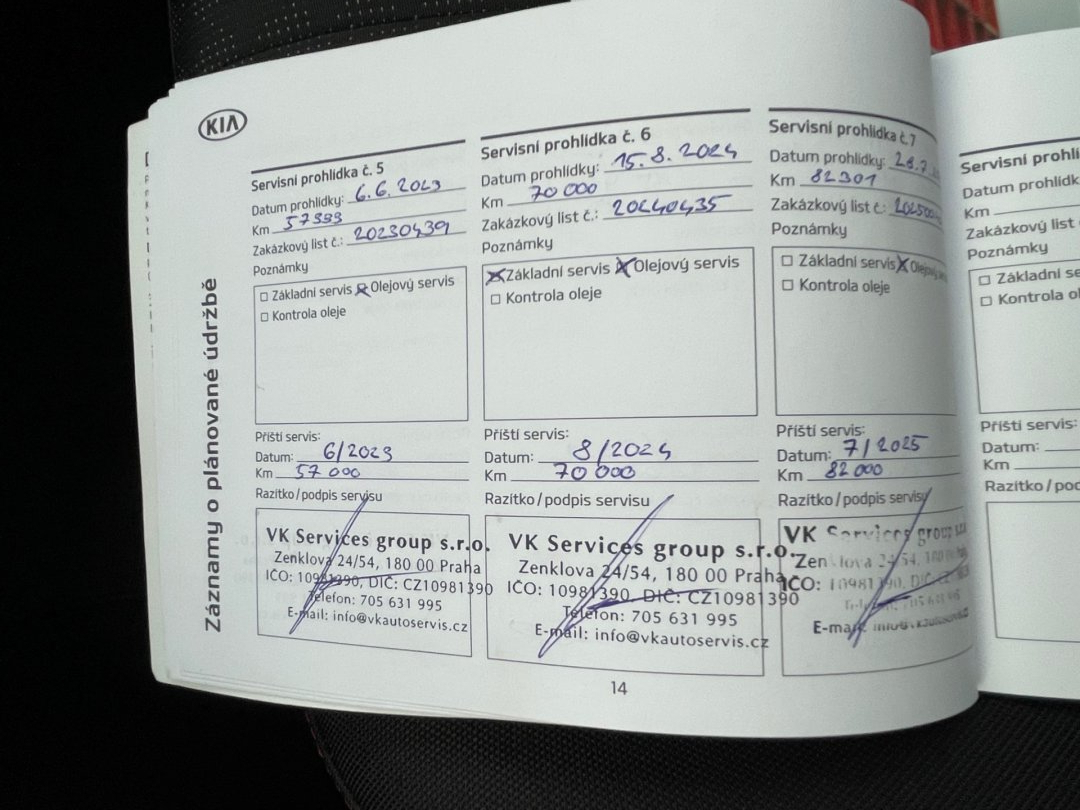 KIA
Záznamy o plánované údržbě
Servisní prohlídka č. 5
Datum prohlídky: 6.6.2023
Km 57999
Zakázkový list č.: 20230439
Poznámky
Základní servis Olejový servis
Kontrola oleje
Příští servis:
Datum: 6/2023
Km 57 000
Razítko/podpis servisu
VK Services group s.r.o.
Zenklova 24/54, 180 00 Praha
IČO: 10981390, DIČ: CZ10981390
Telefon: 705 631 995
E-mail: info@vkautoservis.cz
Servisní prohlídka č. 6
Datum prohlídky: 15.8.2024
Km 70 000
Zakázkový list č.: 20240435
Poznámky
Základní servis Olejový servis
Kontrola oleje
Příští servis:
Datum: 8/2024
Km 70 000
Razítko/podpis servisu
VK Services group s.r.o.
Zenklova 24/54, 180 00 Praha
IČO: 10981390, DIČ: CZ10981390
Telefon: 705 631 995
E-mail: info@vkautoservis.cz
Servisní prohlídka č. 7
Datum prohlídky: 28.7.
Km 82301
Zakázkový list č.:
Poznámky
Základní servis Olejový
Kontrola oleje
Příští servis:
Datum: 7/2025
Km 82 000
Razítko/podpis servisu
VK Services group
Zenklova 24/54, 180 00
IČO: 10981390, DIČ:
E-mail:
Servisní prohlí
Datum prohlídk
Km
Zakázkový list č
Poznámky
Základní se
Kontrola ol
Příští servis:
Datum:
Km
Razítko/poc
14